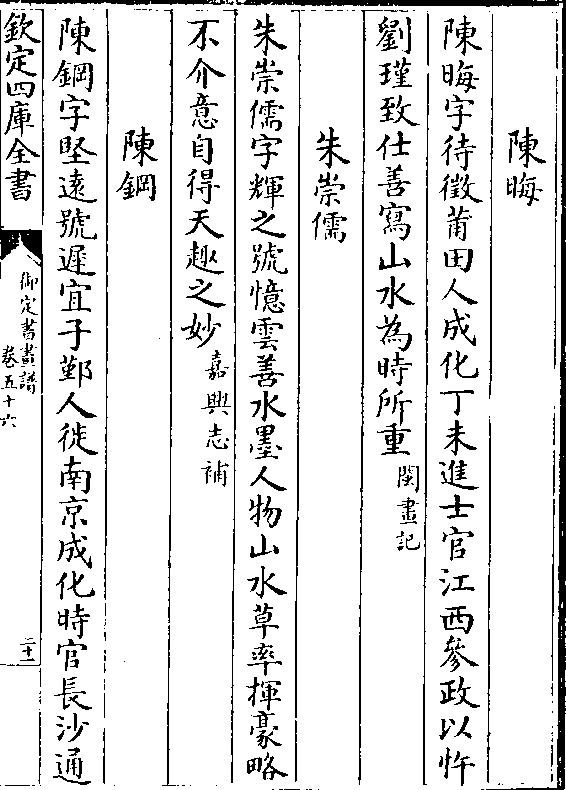 陳晦
陳晦字待徵莆田人成化丁未進士官江西參政以忤
劉瑾致仕善寫山水為時所重閩畫記
朱崇儒
朱崇儒字輝之號憶雲善水墨人物山水草率揮豪略
不介意自得天趣之妙嘉興志補
陳鋼
陳鋼字堅遠號遲宜子鄞人徙南京成化時官長沙通
欽定四庫全書
御定書畫譜
卷五十六
二十一